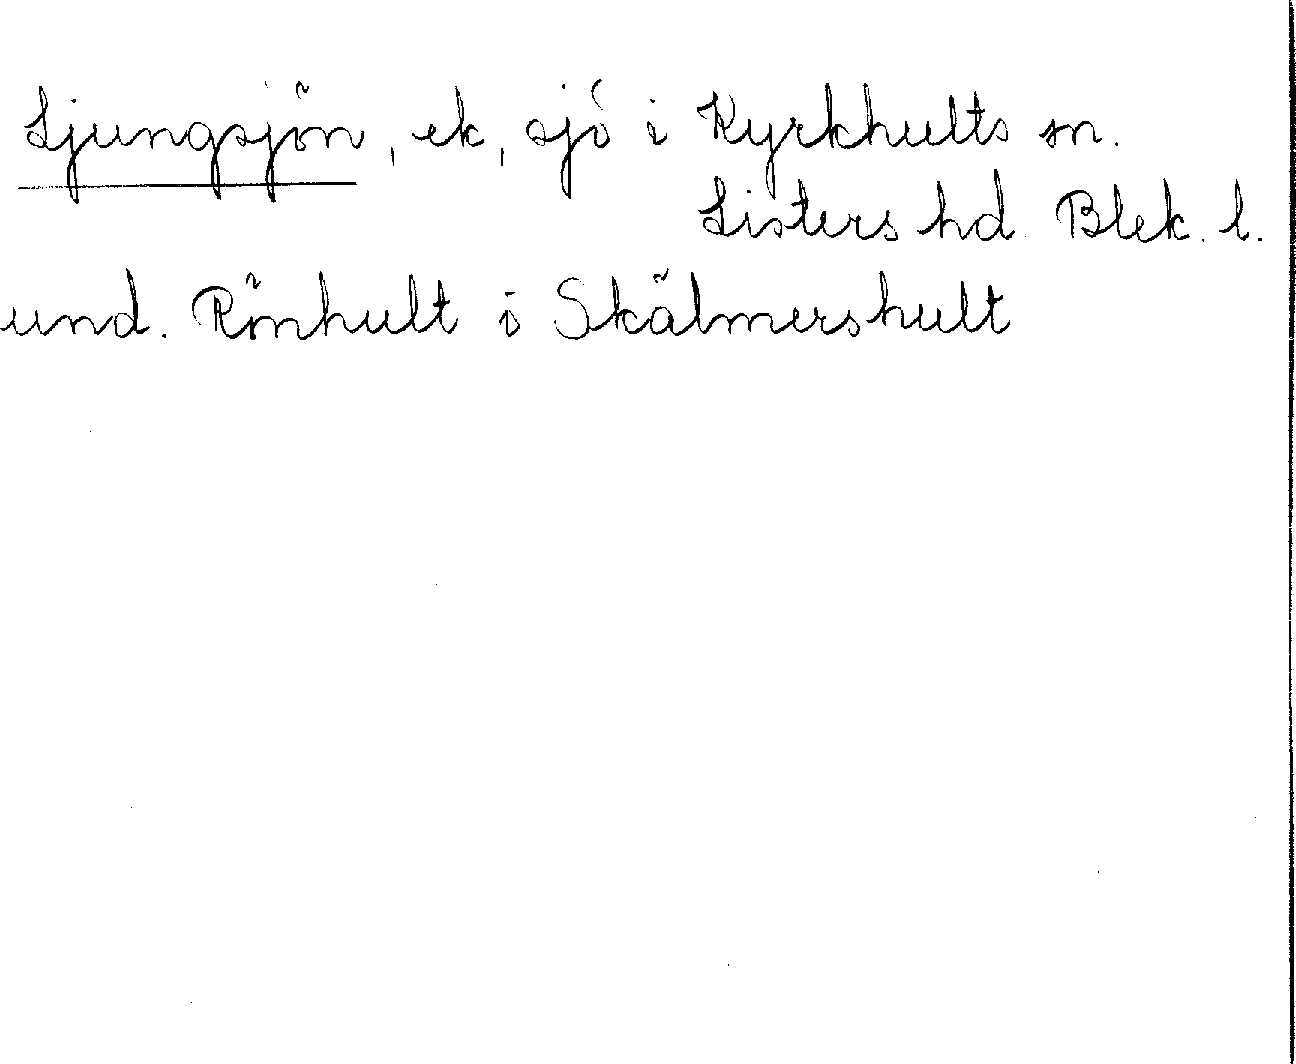 Ljungsjön, ek, sjö i Kyrkhults sn.
Listers hd. Blek. l.
und. Rönhult i Skälmershult